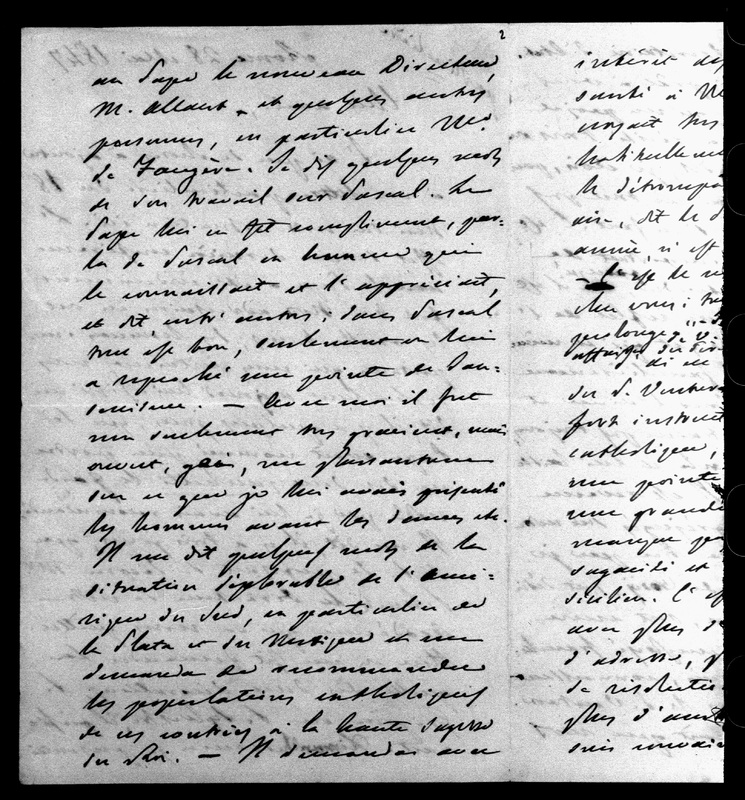 2
au Pape le nouveau Directeur,
M. Allaux, et quelques autres
personnes, en particulier Mr.
de Faugère. Je dis quelques mots
de son travail sur Pascal. Le
Pape lui en fit compliment, par-
la de Pascal en homme qui
le connaissait et l'appréciait,
et dit entr'autres: dans Pascal
tout est bon, seulement on lui
a reproché une pointe de Jan-
senisme. — Avec moi il fut
non seulement très gracieux, mais
ouvert, gai, me plaisantant
sur ce que je lui avais présenté
les hommes avant les dames etc.
Il me dit quelques mots de la
situation déplorable de l'Amé-
rique du Sud, en particulier de
la Plata et du Mexique et me
demanda de recommander
les populations catholiques
de ces contrées à la haute sagesse
du Roi. — Il demanda avec
intérêt des
santé à M
croyait très
habituelleme
le détrompa
dit le
année, il est
de
chez vous: 
prolongea
affaires
du P. Ventura
fort instruit
catholique,
une pointe
une grande
manque
sagacité et
sicilien. C'
avec plus d'
d'adresse,
de resolution
plus d'
suis convain
Rome 28 Mai 1847